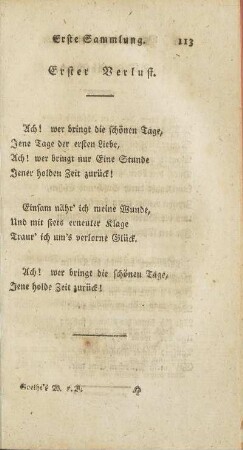 Erste Sammlung. 113
Erster Verlust.
Ach! wer bringt die schönen Tage,
Jene Tage der ersten Liebe,
Ach! wer bringt nur Eine Stunde
Jener holden Zeit zurück!
Einsam nähr' ich meine Wunde,
Und mit stets erneuter Klage
Traur' ich um's verlorne Glück.
Ach! wer bringt die schönen Tage,
Jene holde Zeit zurück!
Goethe's W. 8. B. H